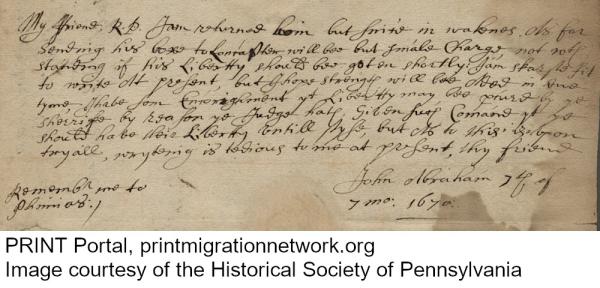 My ffriend. R.B. I am returned hom but finite in wakenes. As for
sending his to Lancaster will bee but smale Charge not with
standing if his Liberty should bee goten shortly I am skarsle fit
to write At present, but I hope strength will bee Aded in due
tyme I have som Encorigment yt Liberty may bee by ye
sherrife by reason ye Judge hath Given such Comand yt ye
should have their Liberty untill syse, but As to this is upon
tryall, wryteing is tedious to me at present, thy friend
John Abraham 7th of
7 mo. 1670.
Remembr me to
Phinias:/
PRINT Portal, printmigrationnetwork.org
Image courtesy of the Historical Society of Pennsylvania